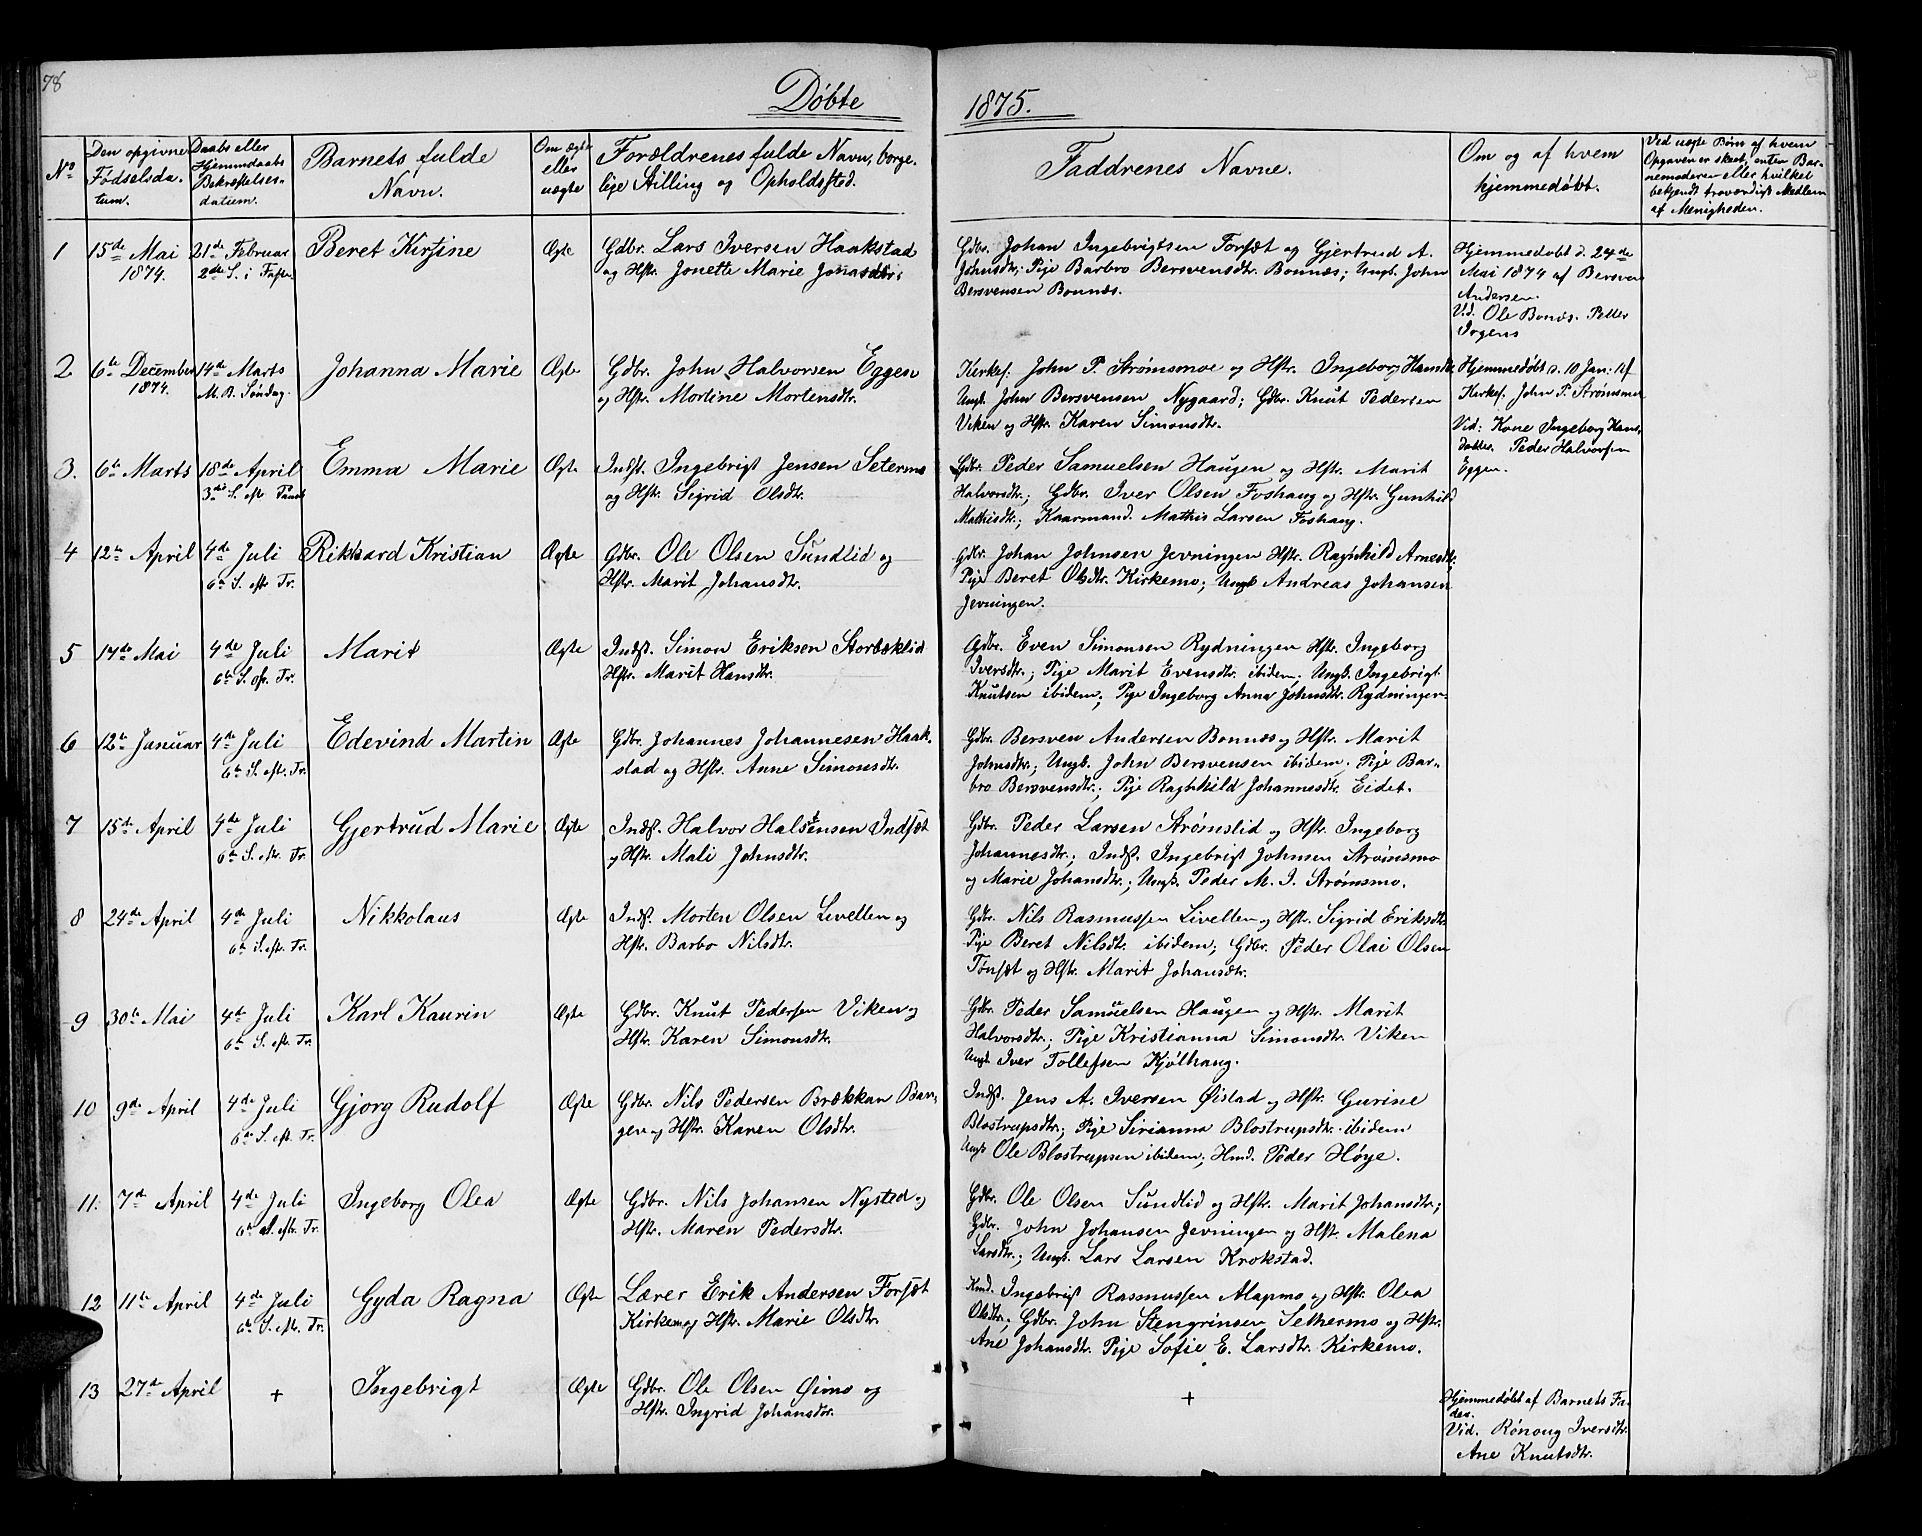 78
Døbte
1875.
No
Den opgivne
Fødselsda-
tum.
Daabs eller
Hjemmdaabs
Bekræftelses-
datum.
Barnets fulde
Navn.
Om ægte
eller
uægte
Forældrenes fulde Navn, borge-
lige Stilling og Opholdssted.
Faddrenes Navne.
Om og af hvem
hjemmedøbt.
Ved uægte Børn af hvem
Opgaven er skeet, enten Bar-
nemoderen eller hvilket
bekjendt troværdigt Medlem
af Menigheden.
1
15de Mai
1874.
21de Februar
2de S. i Faste
Beret Kirstine
Ægte
Gdbr. Lars Iversen Haakstad
og Hstr. Jonette Marie Jonasdtr.
Gdbr. Johan Ingebrigtsen Forsæt og Gjertrud A.
Johnsdtr; Pige Barbro Bersvensdtr. Bonnæs; Ungk. John
Bersvensen Bonnæs.
Hjemmedøbt d. 24de
Mai 1874 af Bersven
Andersen.
Vid. Ole Bonæs. Petter
2
6te December
1874.
14de Marts
M. B. Søndag.
Johanna Marie
Ægte
Gdbr. John Halvorsen Eggen
og Hstr. Mortine Mortensdtr.
Kirkes. John P. Strømsmoe og Hstr. Ingeborg Hansdtr
Ungk. John Bersvensen Nygaard; Gdbr. Knut Pedersen
Viken og Hstr. Karen Simonsdtr.
Hjemmedøbt d. 10 Jan. af
Kirkes. John P. Strømsmo
Vid: Kone Ingeborg Hans-
datter. Peder Halvorsen
Eggen.
3.
6te Marts
18de April
3die S. eft. Paask
Emma Marie
Ægte
Indst. Ingebrigt Jensen Setermo
og Hstr. Sigrid Olsdtr.
Gdbr. Peder Samuelsen Haugen og Hstr. Marit
Halvorsdtr; Gdbr. Iver Olsen Foshaug og Hstr. Gunhild
Mathisdtr; Kaarmand. Mathis Larsen Foshaug.
4
12te April
4de Juli
6te S. eft. Tr.
Rikkard Kristian
Ægte
Gdbr. Ole Olsen Sundlid og
Hstr. Marit Johansdtr.
Gdbr. Johan Johnsen Jevningen Hstr. Ragnhild Arnesdtr.
Pige Beret Olsdtr. Kirkemo; Ungk Andreas Johansen
Jevningen.
5
17de Mai
4de Juli
6te S. eft. Tr.
Marit
Ægte
Indst. Simon Eriksen Storbæklid
Hstr. Marit Hansdtr.
Gdbr. Even Simonsen Rydningen Hstr. Ingeborg
Iversdtr; Pige Marit Evensdtr. ibidem; Ungk. Ingebrigt
Knutsen ibidem; Pige Ingeborg Anna Johnsdtr. Rydningen
6
12te Januar
4de Juli
6te S. eft. Tr.
Edevind Martin
Ægte
Gdbr. Johannes Johannesen Haak-
stad og Hstr. Anne Simonsdtr.
Gdbr. Bersven Andersen Bonnæs og Hstr. Marit
Johnsdtr; Ungk. John Bersvensen ibidem; Pige Bar-
bro Bersvensdtr; Pige Raghnild Johannesdtr. Eidet.
7
15de April
4de Juli
6te S. eft. Tr.
Gjertrud Marie
Ægte
Indst. Halvor Halstensen Indsæt
og Hstr. Mali Johnsdtr.
Gdbr. Peder Larsen Strømslid og Hstr. Ingeborg
Johannesdtr; Indst. Ingebrigt Johnsen Strømsmo
og Marie Johansdtr; Ungk. Peder M. J. Strømsmo.
8
24de April
4de Juli
6te S. eft. Tr.
Nikkolaus
Ægte
Indst. Morten Olsen Livelten og
Hstr. Barbo Nilsdtr.
Gdbr. Nils Rasmussen Livelten og Hstr. Sigrid Eriksdtr
Pige Beret Nilsdtr. ibidem; Gdbr. Peder Olai Olsen
Tønsæt og Hstr. Marit Johansdtr.
9
30te Mai
4de Juli
6te S. eft. Tr.
Karl Kaurin
Ægte
Gdbr. Knut Pedersen Viken og
Hstr. Karen Simonsdtr.
Gdbr. Peder Samuelsen Haugen og Hstr. Marit
Halvorsdtr; Pige Kristianna Simonsdtr. Viken
Ungk. Iver Tollefsen Kjølhaug.
10
9de April
4de Juli
6te S. eft. Tr.
Gjorg Rudolf
Ægte
Gdbr. Nils Pedersen Brækkan Ban-
gen og Hstr. Karen Olsdtr.
Indst. Jens A. Iversen Øistad og Hstr. Gurine
Blostrupsdtr; Pige Sirianna Blostrupsdtr. ibidem
Ungk Ole Blostrupsen ibidem; Hmd. Peder Høye.
11.
7de April
4de Juli
6te S. eft. Tr.
Ingeborg Olea
Ægte
Gdbr. Nils Johansen Nysted og
Hstr. Maren Pedersdtr.
Gdbr. Ole Olsen Sundlid og Hstr. Marit Johansdtr;
Gdbr. John Johansen Jevningen og Hstr. Malena
Larsdtr; Ungk. Lars Larsen Krokstad.
12
11te April
4de Juli
6te S. eft. Tr.
Gyda Ragna
Ægte
Lærer Erik Andersen Forsæt
Kirkemo og Hstr. Marie Olsdtr.
Kmd. Ingebrigt Rasmussen Alapmo og Hstr. Olea
Olsdtr; Gdbr. John Stengrinsen Sethermo og Hstr.
Ane Johansdtr. Pige Sofie E. Larsdtr. Kirkemo.
13
27de April
+
Ingebrigt
Ægte
Gdbr. Ole Olsen Øimo og
Hstr. Ingrid Johansdtr.
+
Hjemmedøbt af Barnets Fa-
der.
Vid. Rønoug Iversdtr.
Ane Knutsdtr.